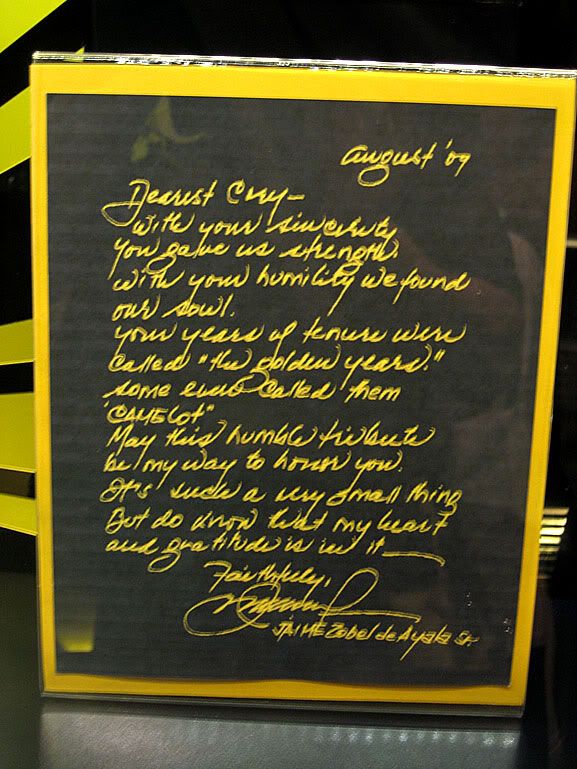 August '09
Dearest Cory-
With your sincerity
you gave us strength.
With your humility we found
our soul.
Your years of tenure were
called "the golden years."
Some even called them
"CAMELOT"
May this humble tribute
be my way to honor you.
It's such a very small thing
But do know that my heart
and gratitude is in it —
Faithfully,
JAIME Zobel de Ayala Sr.